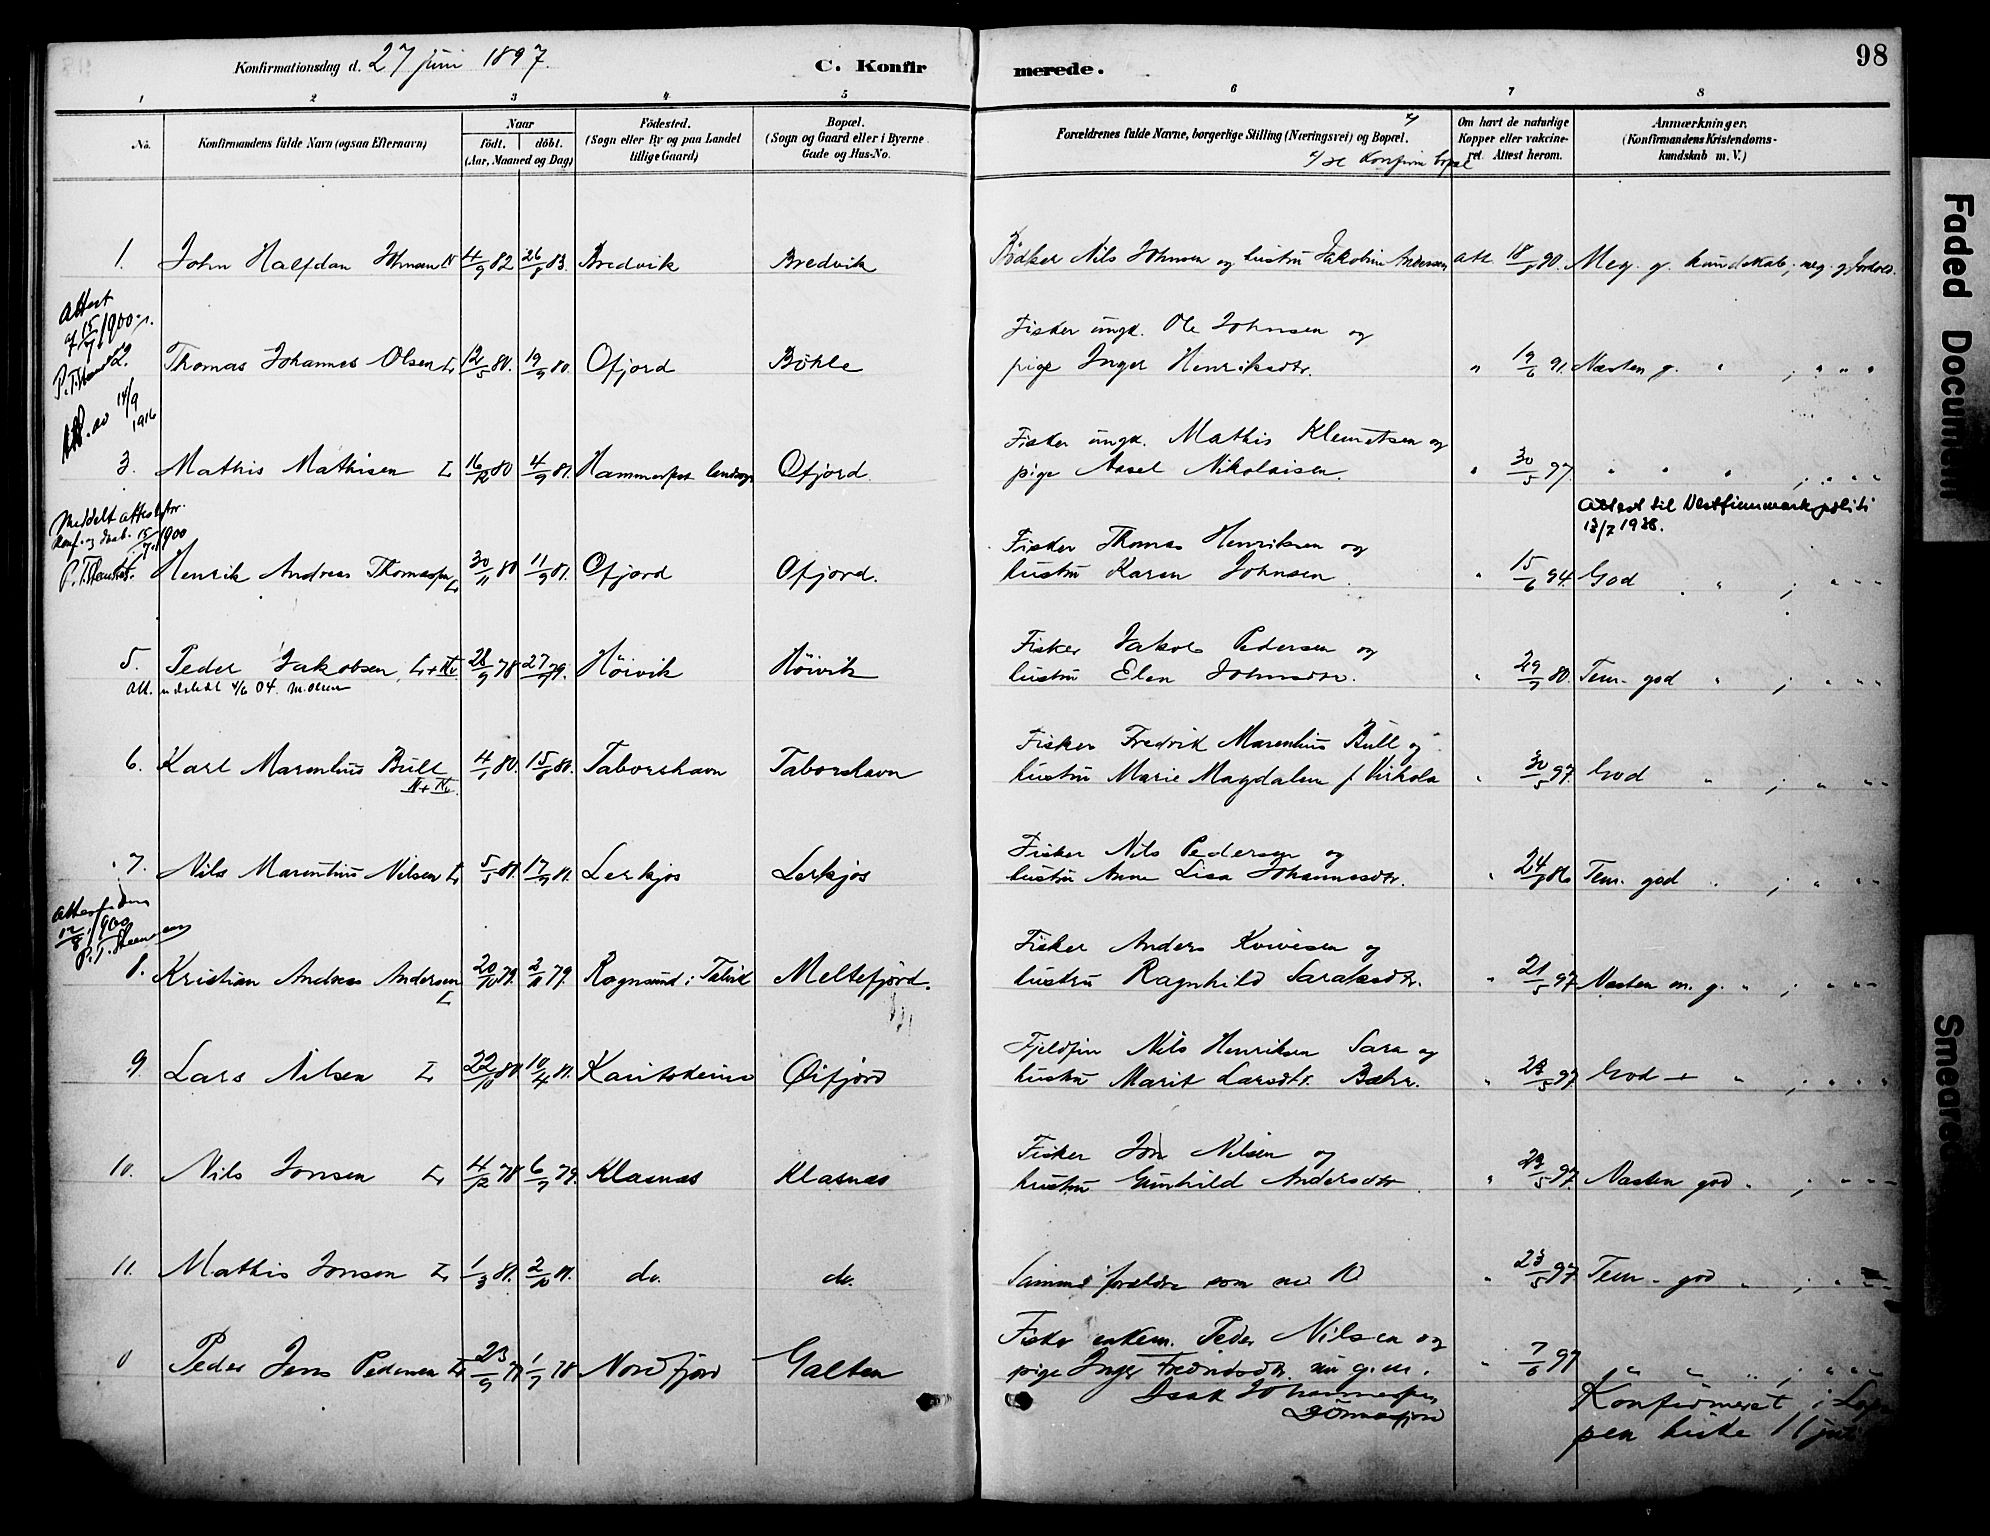 98
Konfirmationsdag d. 27 juni 1897.
C. Konfirmerede.
1 2 3 4 5 6 7 8
No.
Konfirmandens fulde Navn (ogsaa Efternavn)
Naar
födt. döbt.
(Aar, Maaned og Dag)
Födested.
(Sogn eller By og paa Landet
tillige Gaard)
Bopæl.
(Sogn og Gaard eller i Byerne
Gade og Hus-No.
Forældrenes fulde Navne, borgerlige Stilling (Næringsvei) og Bopæl.
Om havt de naturlige
Kopper eller vakcine-
ret. Attest herom.
Anmærkninger.
(Konfirmandens Kristendoms-
kundskab m. V.)
1. John Halfdan Johnsen N 4/9 82 26/8 83. Bredvik Bredvik Bödker Nils Johnsen og hustru Jakobine Andersen att. 18/9 90. Meg. g. kundskab; meg. g. forhold.
Attest
af 15/7 1900.
P. T. Steen
Att. av 14/9
1916
2. Thomas Johannes Olsen L 12/5 80. 19/9 80. Ofjord Böhle Fisker ungk. Ole Johnsen og
pige Inger Henriksdtr. " 19/6 91. Næsten g. " ; " " "
3. Mathis Mathisen L 16/12 80 4/9 81. Hammerfest landsogn Ofjord. Fisker ungk. Mathis Klemetsen og
pige Marel Nikolaisen. " 30/5 97. " " " ; " " "
Meddelt attest for
konf. og daab. 15/7 1900
Attest til Vestfinnmark politi
13/7 1938.
Henrik Andreas Thomassen L 30/11 80 11/9 81. Ofjord Ofjord. Fisker Thomas Henriksen og
hustru Karen Johnsen. " 15/6 94. God " ; " " "
5. Peder Jakobsen, L + Kv 28/9 78 27/7 79. Höivik Höivik Fisker Jakob Pedersen og
hustru Elen Johnsdtr. " 29/9 80. Tem. god " ; " " "
Att. utstedt 4/6 04. M. Olsen
6. Karl Marenhius Bull N + Kv. 4/1 80. 15/8 80. Taborshavn Taborshavn Fisker Fredrik Marenhius Bull og
hustru Marie Magdalena f. Virkola " 30/5 97. God " ; " " "
7. Nils Marenhius Nilsen L 5/5 81. 17/9 81. Lerkjos Lerkjos Fisker Nils Pedersen og
hustru Anne Lisa Johannesdtr. " 24/8 86 Tem. god " ; " " "
8. Kristian Andreas Andersen L 20/10 79. 2/11 79. Rognsund i Talvik Meltefjörd. Fisker Anders Kvivesen og
hustru Ragnhild Saraksdtr. " 21/5 97 Næsten m. g. " ; " " "
9. Lars Nilsen L 22/10 80 10/4 81. Kautokeino Öifjörd Fjeldfin Nils Henriksen Sara og
hustru Marit Larsdtr. Bæhr. " 23/5 97. God + " ; " " "
10. Nils Jonsen L 4/12 78 6/9 79. Klasnæs Klasnæs Fisker Jon Nilsen og
hustru Gunhild Andersdtr. " 23/5 97. Næsten god " ; " " "
11. Mathis Jonsen L 1/3 81. 2/10 81. do. do. Samme forældre som no 10 " 23/5 97. Tem. god " ; " "
0 Peder Jens Pedersen L 23/9 77 1/7 78 Nordfjörd Galten Fisker enkem. Peder Nilsen og
pige Inger Fredriksdtr. nu g. m.
Isak Johannessen
Dönnesfjord " 7/6 97 " " " ; " " "
Konfirmeret i Lop-
pen kirke 11 juli